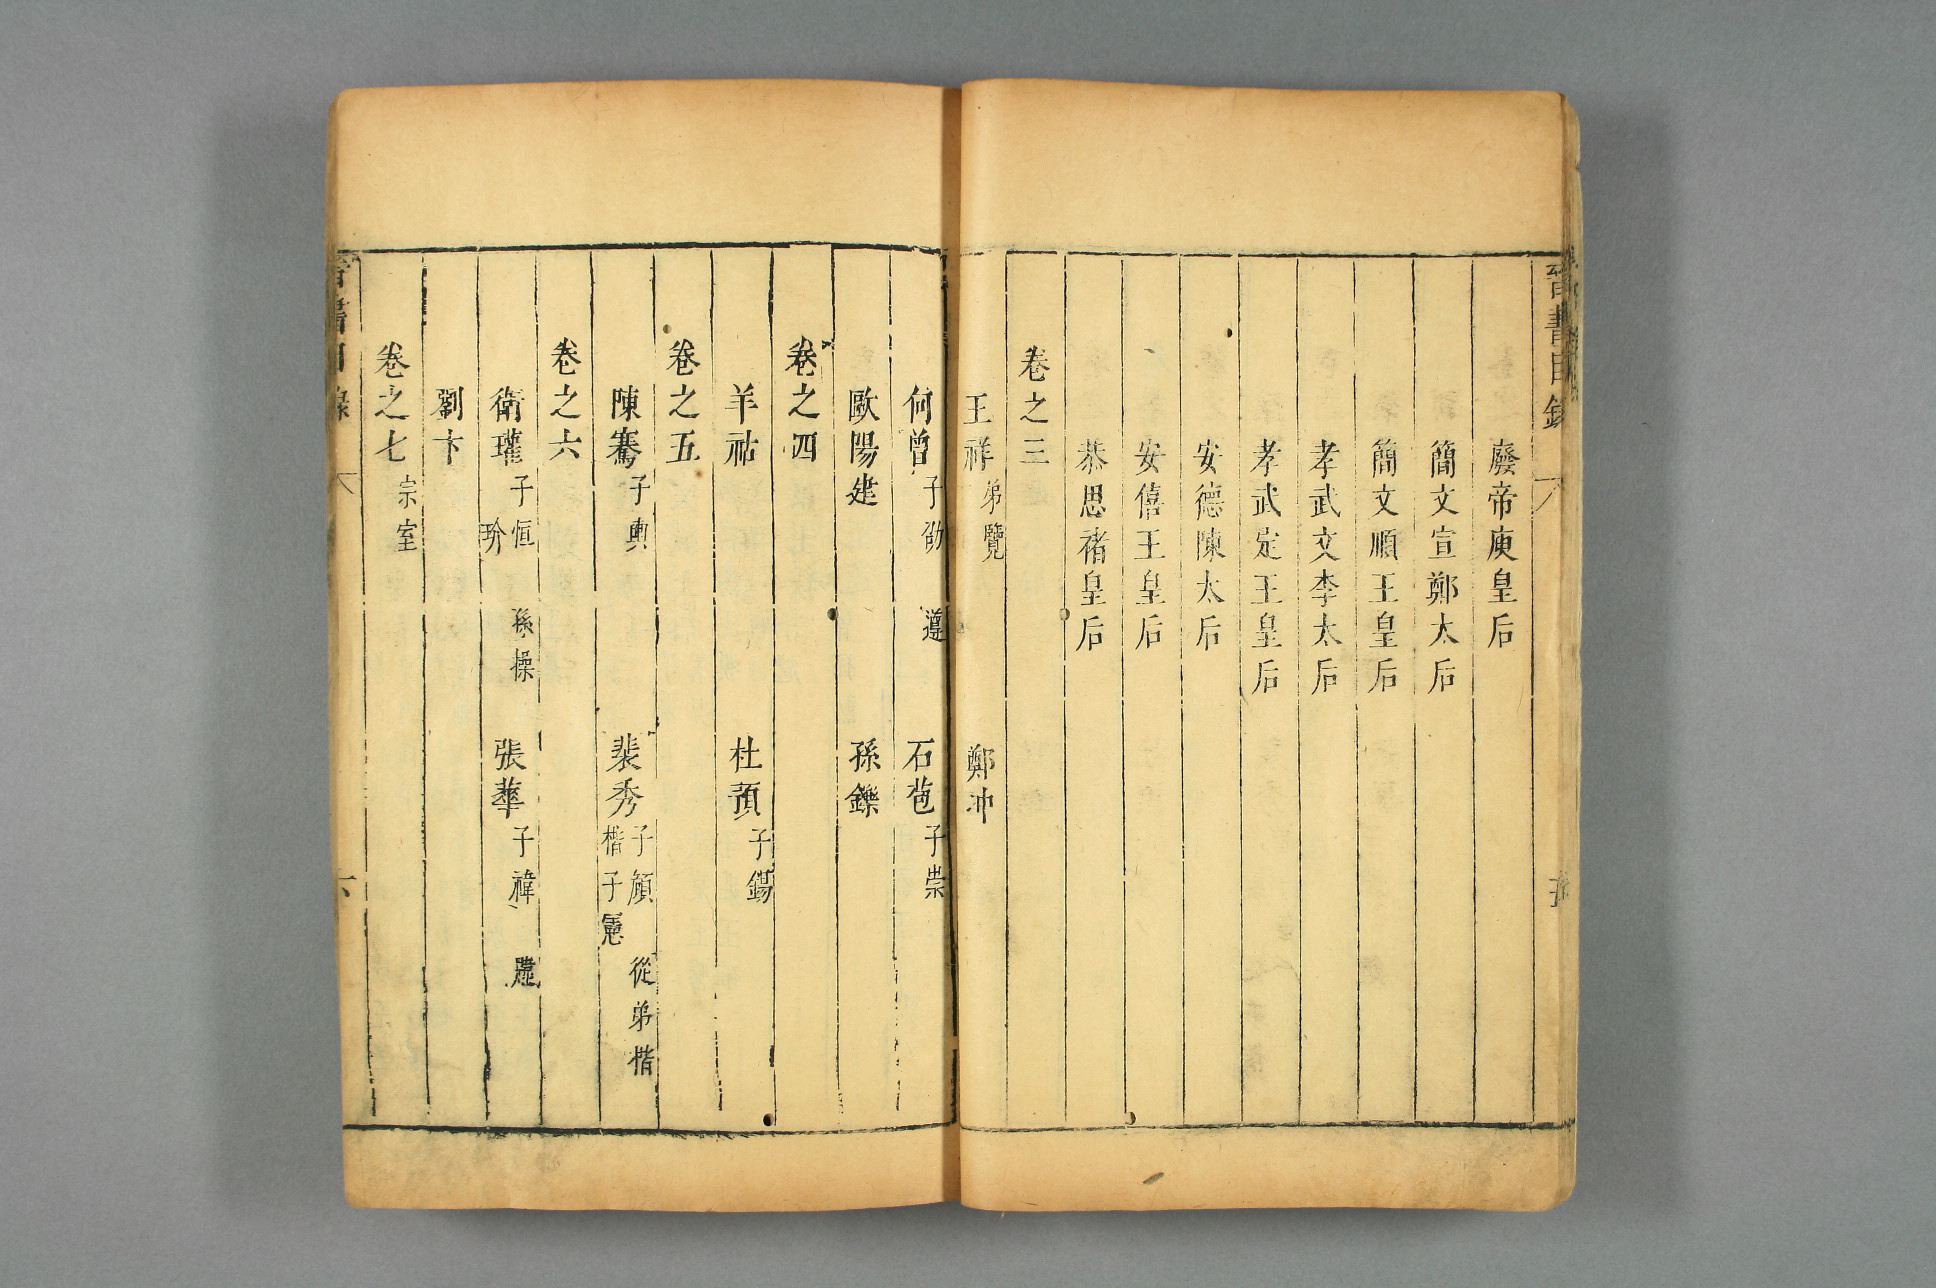 晉書目錄
廢帝庾皇后
簡文宣鄭太后
簡文順王皇后
孝武文李太后
孝武定王皇后
安德陳太后
安僖王皇后
恭思褚皇后
卷之三
王祥 弟覽 鄭冲
何曾 子劭 遵 石苞 子崇
歐陽建 孫鑠
卷之四
羊祜 杜預 子錫
卷之五
陳騫 子輿 裴秀 子頠 從弟楷 楷子憲
卷之六
衛瓘 子恒 孫操 玠 張華 子禕 韙
劉卞
卷之七 宗室
晉書目錄
六